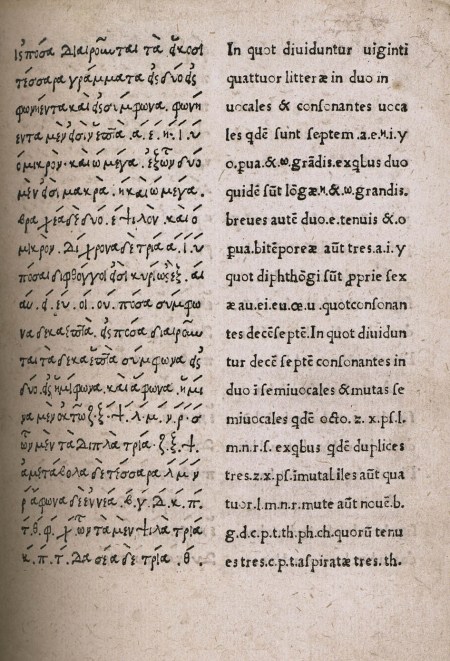 ἰς πόσα διαιροῦνται τὰ εἴκοσι
τέσσαρα γράμματα εἰς δύο εἰς
φωνήεντα καὶ εἰς σύμφωνα. φωνή
εντα μὲν εἰσὶν ἑπτὰ. α. ε. η. ι. υ
ὀμικρον. καὶ ω μέγα. ἐξ ὧν δύο
μὲν εἰσὶ μακρὰ. η καὶ ω μέγα.
βραχέα δὲ δύο. ε ψιλόν. καὶ ο
μικρον. δίχρονα δὲ τρία α. ι. υ
πόσαι δίφθογγοι εἰσὶ κυρίως ἓξ. αι
αυ. ει. ευ. οι. ου. πόσα σύμφω
να δεκαεπτά. εἰς πόσα διαιροῦν
ται τὰ δεκαεπτὰ σύμφωνα εἰς
δύο. εἰς ἡμίφωνα καὶ ἄφωνα. ἡμί
να μὲν ὀκτὼ ζ. ξ. ψ. λ. μ. ν. ρ. σ
ὧν μὲν τὰ διπλᾶ τρία. ζ. ξ. ψ.
ἀμετάβολα δὲ τέσσαρα. λ μ ν
ρ ἄφωνα δὲ ἐννέα. β. γ. δ. κ. π.
τ. θ. φ. χ ὧν τὰ μὲν ψιλὰ τρία
κ. π. τ. δασέα δὲ τρία. θ.
In quot diuiduntur uiginti
quattuor litteræ in duo in
uocales & consonantes uoca
les qdē sunt septem .a.e.η.i.y
o.pua.&.ω.grādis.exqbus duo
quidē sūt lōgæ.η.&.ω.grandis.
breues autē duo.e.tenuis &.o
pua.bitēporeæ aūt tres.a.i.y
quot diphthōgi sūt pprie sex
æ au.ei.eu.œ.u.quotconsonan
tes decēseptē.In quot diuidun
tur decē septē consonantes in
duo ī semiuocales &mutas se
miuocales qdē octo. z. x.ps.l.
m.n.r.s. exqbus qdē duplices
tres.z.x.ps.imutabiles aūt qua
tuor.l.m.n.r.mute aūt nouē.b.
g.d.c.p.t.th.ph.ch.quorū tenu
es tres.c.p.t.aspiratæ tres.th.